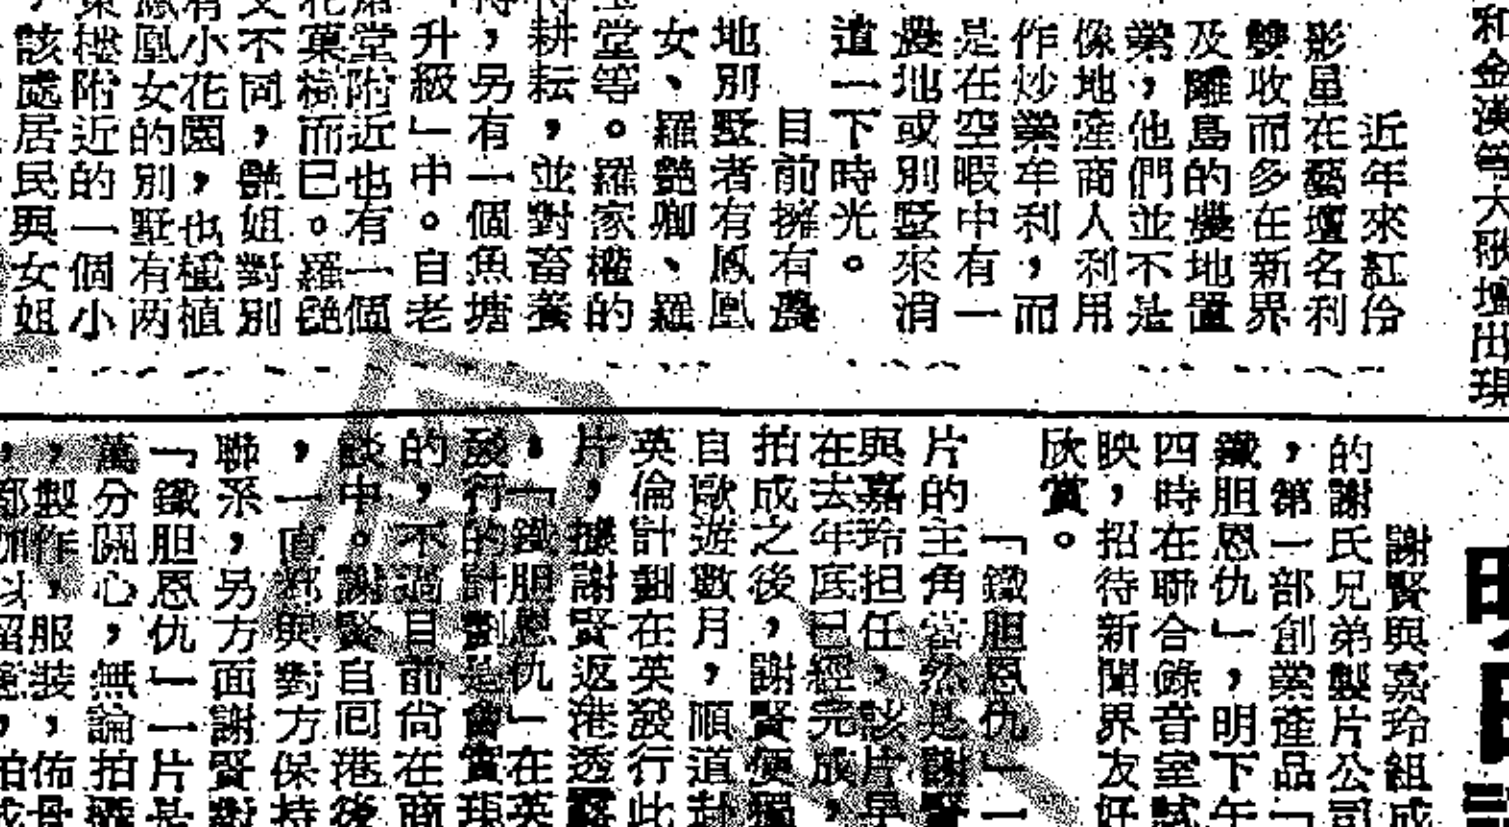 和金漢等大歌壇出現
近年來紅伶
影星在藝壇名利
雙收而多在新界
及離島的農地置
業，他們並不是
像地產商人利用
作炒業牟利，而
是在空暇中有一
農地或別墅來消
道一下時光。
目前擁有農
地別墅者有鳳凰
女、羅艷卿、羅
堂等。羅家權的
耕耘，並對畜養
，另有一個魚塘
升級」中。自老
堂附近也有一個
花菓樹而已。羅艷
不同，艷姐對別
有小花園，也種植
鳳凰女的別墅有两
樓附近的一個小
該處居民與女姐
謝賢與嘉玲組成
的謝氏兄弟製片公司
，第一部創業產品「
鐵胆恩仇」，明下午
四時在聯合錄音室試
映，招待新聞界友好
欣賞。
「鐵胆恩仇」一
片的主角當然是謝賢
與嘉玲担任，該片早
在去年底已經完成，
拍成之後，謝賢便獨
自歐遊數月，順道赴
英倫計劃在英發行此
片，據謝賢返港透露
，「鐵胆恩仇」在英
發行的計劃是會實現
的，不過目前尚在商
談中。謝賢自囘港後
，一直都與對方保持
聯系，另方面謝賢對
「鐵胆恩仇」一片是
萬分關心，無論拍攝
，製作，服裝，佈